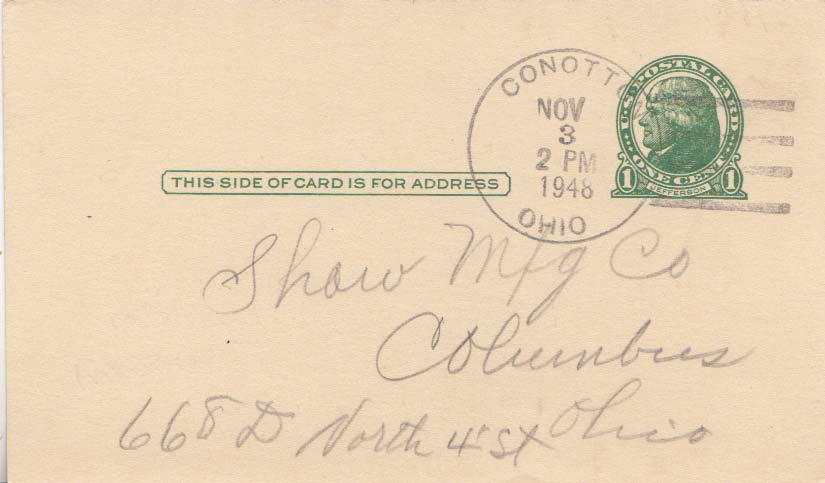 CONOTTO
NOV
3
2 PM
1948
OHIO
U.S. POSTAL CARD
ONE CENT
1 JEFFERSON 1
THIS SIDE OF CARD IS FOR ADDRESS
Show Mfg Co
Columbus
668 D North 4th St Ohio